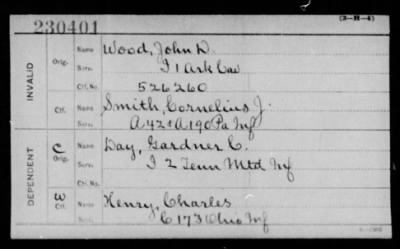 (3-H-4)
230401
INVALID
Orig. Name Wood, John D.
Serv. I 1 Ark Cav
Ctf. No. 526260
Ctf. Name Smith, Cornelius J.
Serv. A 42 & A 190 Pa Inf
DEPENDENT
C Orig. Name Day, Gardner C.
Serv. I 2 Tenn Mtd Inf
Ctf. No.
W Ctf. Name Henry, Charles
Serv. C 173 Ohio Inf